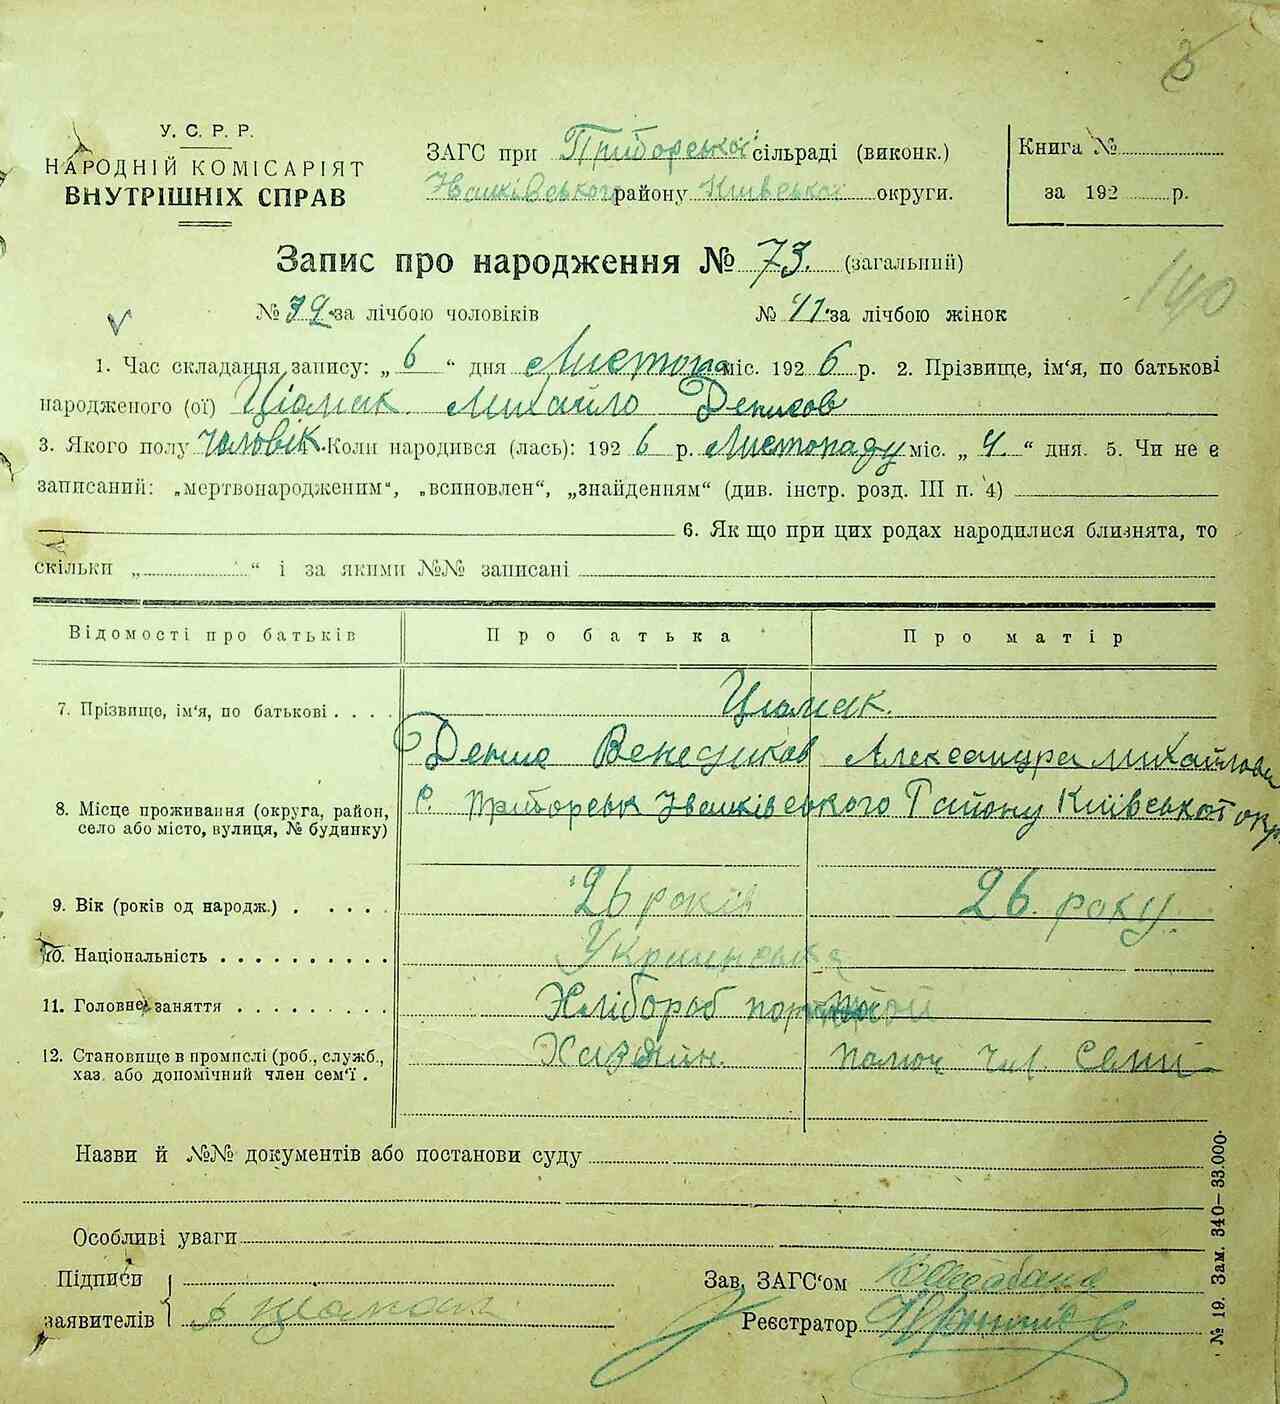 У. С. Р. Р.
НАРОДНІЙ КОМІСАРІЯТ
ВНУТРІШНІХ СПРАВ
ЗАГС при Приборської сільраді (виконк.)
Іванківського району Київської округи.
Книга №
за 192 р.
Запис про народження № 73. (загальний)
140
№ 32 за лічбою чоловіків № 41 за лічбою жінок
1. Час складання запису: „ 6 “ дня Листопа міс. 192 6 р. 2. Прізвище, ім'я, по батькові
народженого (ої) Цюмак Михайло Денисов
3. Якого полу Чоловік. Коли народився (лась): 192 6 р. Листопаду міс. „ 4. “ дня. 5. Чи не є
записаний: „мертвонародженим“, „всиновлен“, „знайденням“ (див. інстр. розд. III п. 4)
6. Як що при цих родах народилися близнята, то
скільки „ “ і за якими №№ записані
Відомості про батьків Про батька Про матір
7. Прізвище, ім'я, по батькові . . . . Цюмак.
Денис Венедиков Александра Михайлова
8. Місце проживання (округа, район, село або місто, вулиця, № будинку) с. Приборськ Іванківського Району Київської окр.
9. Вік (років од народж.) . . . . . 26 років 26. року
10. Національність . . . . . . . . . . Українська
11. Головне заняття . . . . . . . . . Хлібороб
12. Становище в промислі (роб., служб., хаз. або допомічний член сем'ї . Хазяїн. помоч чл. Семї
Назви й №№ документів або постанови суду
Особливі уваги
Підписи
заявителів Цюмак
Зав. ЗАГС'ом
Реєстратор
№ 19. Зам. 340—33.000.